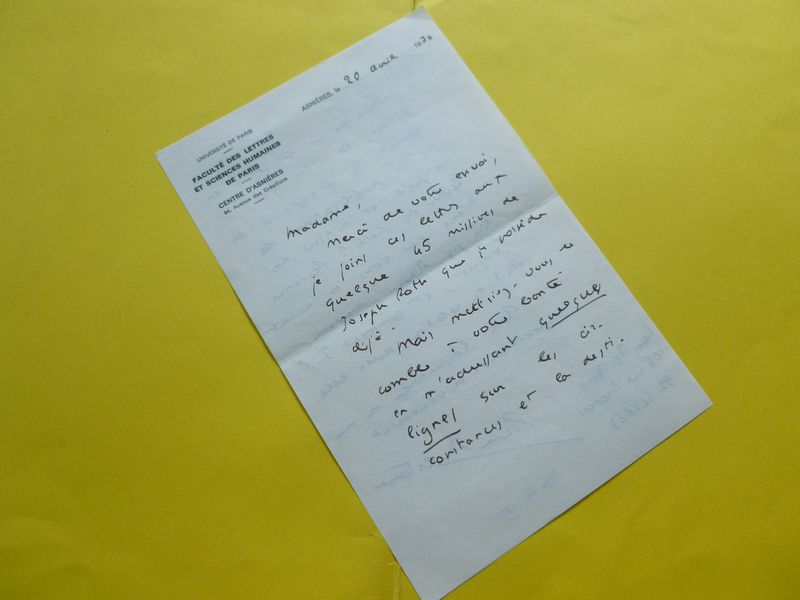 ASNIÈRES, le 20 avril 1970
UNIVERSITÉ DE PARIS
FACULTÉ DES LETTRES
ET SCIENCES HUMAINES
DE PARIS
CENTRE D'ASNIÈRES
94, Avenue des Grésillons
Madame,
Merci de votre envoi,
je joins ces lettres aux
quelque 45 missives de
Joseph Roth que je possède
déjà. Mais mettriez-vous le
comble à votre bonté
en m'adressant quelques
lignes sur les cir-
constances et la desti-